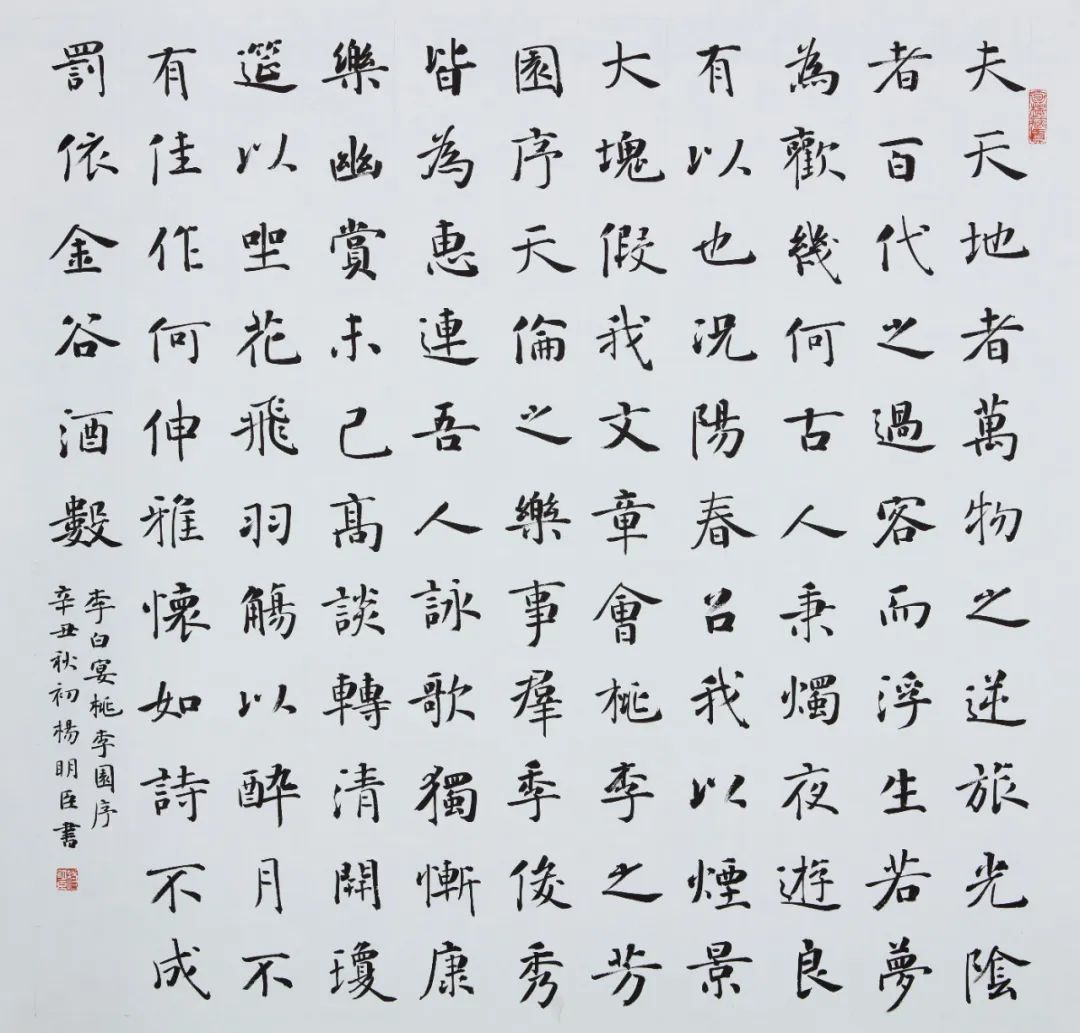 夫天地者萬物之逆旅光陰
者百代之過客而浮生若夢
為歡幾何古人秉燭夜遊良
有以也況陽春召我以煙景
大塊假我文章會桃李之芳
園序天倫之樂事羣季俊秀
皆為惠連吾人詠歌獨慚康
樂幽賞未已髙談轉清開瓊
筵以坐花飛羽觴以醉月不
有佳作何伸雅懷如詩不成
罰依金谷酒數
李白宴桃李園序
辛丑秋初楊明臣書